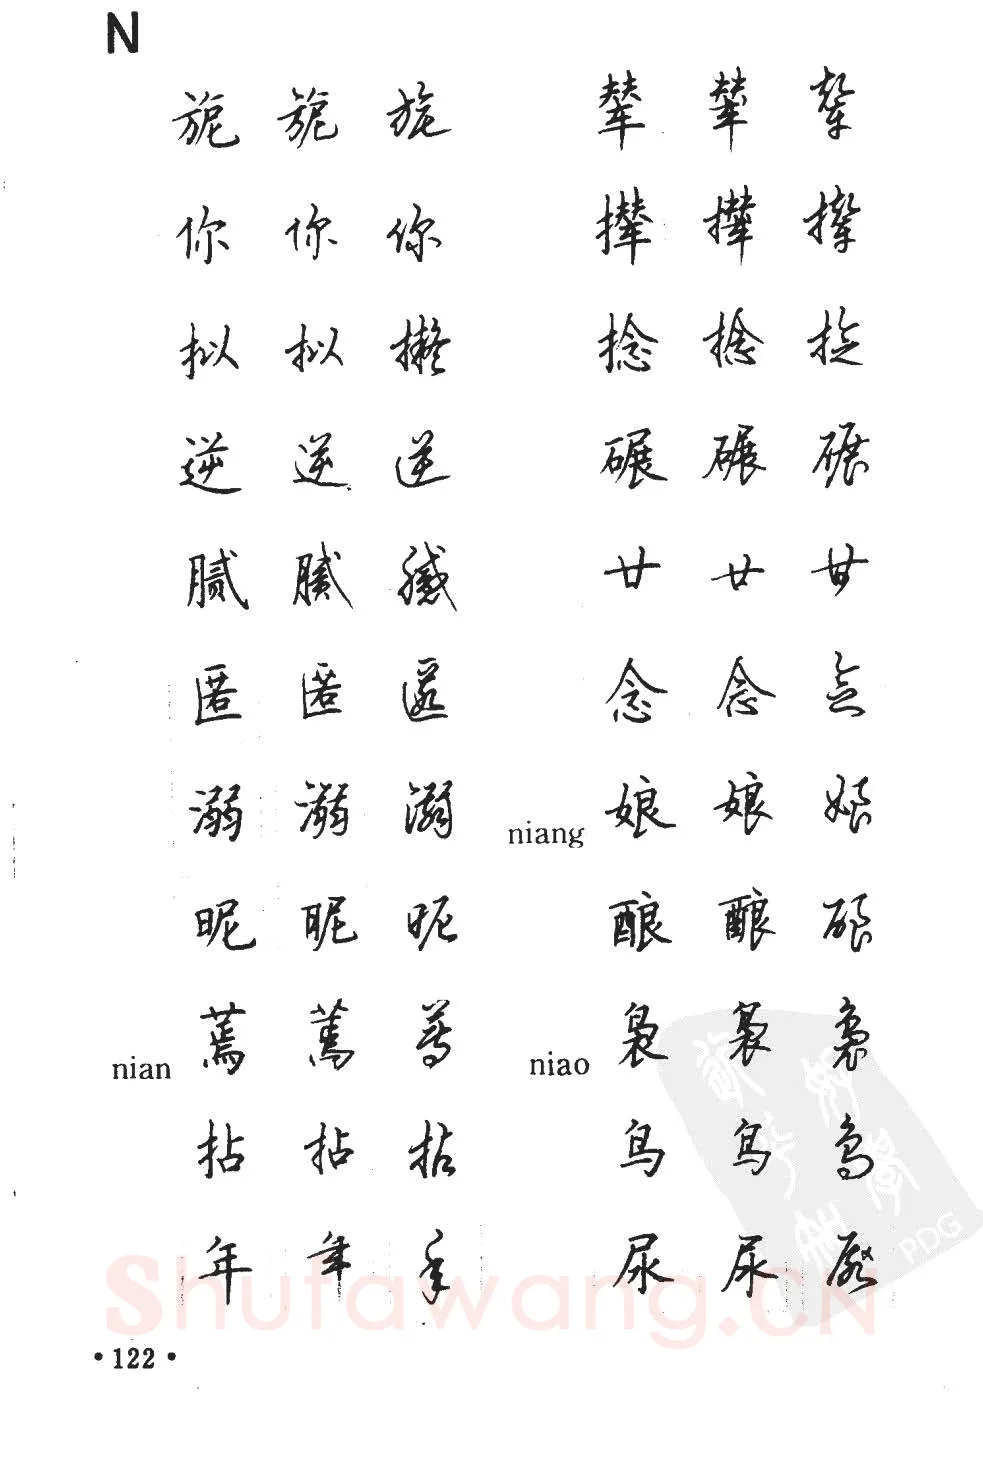 N
旎 旎 旎
你 你 你
拟 拟 擬
逆 逆 逆
腻 腻 膩
匿 匿 匿
溺 溺 溺
昵 昵 昵
nian 蔫 蔫 蔫
拈 拈 拈
年 年 年
辇 辇 辇
撵 撵 撵
捻 捻 捻
碾 碾 碾
廿 廿 廿
念 念 念
niang 娘 娘 娘
酿 酿 酿
niao 袅 袅 袅
鸟 鸟 鸟
尿 尿 尿
Shufawang.CN
PDG
·122·